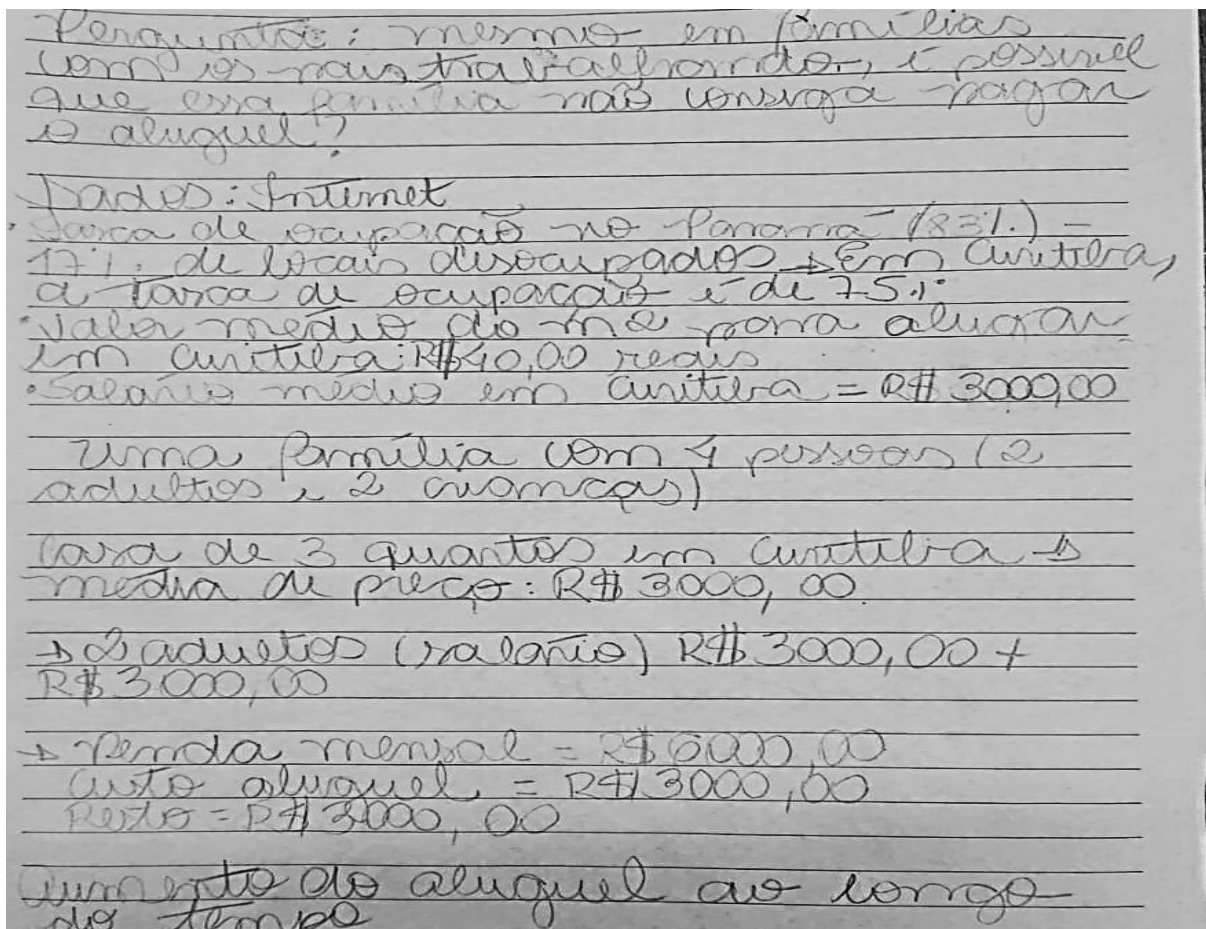 Pergunta: mesmo em famílias
com os pais trabalhando, é possível
que essa família não consiga pagar
o aluguel?
Dados: Internet
• Taxa de ocupação no Paraná (83%) -
17% de locais desocupados → Em Curitiba,
a taxa de ocupação é de 75%.
• Valor médio do m2 para alugar
em Curitiba: R$40,00 reais
• Salário médio em Curitiba = R$ 3000,00
Uma família com 4 pessoas (2
adultos e 2 crianças)
Casa de 3 quartos em Curitiba →
média de preço: R$ 3000,00.
→ 2 adultos (salário) R$ 3000,00 +
R$ 3000,00
→ Renda mensal = R$ 6000,00
Custo aluguel = R$ 3000,00
Resto = R$ 3000,00
Aumento do aluguel ao longo
do tempo